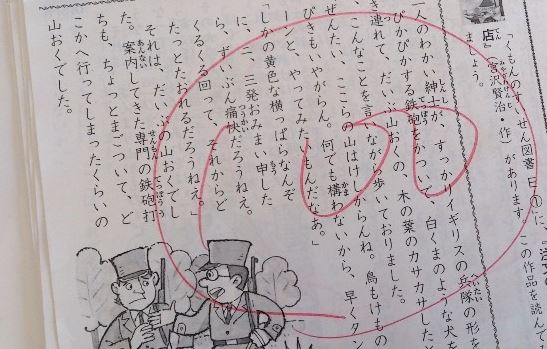 「くもんのすいせん図書 E①に、『注文
店』宮沢賢治・作）があります。この作品を読んで
ましょう。
二人のわかい紳士が、すっかりイギリスの兵隊の形を
ぴかぴかする鉄砲をかついで、白くまのような犬を
き連れて、だいぶ山おくの、木の葉のカサカサした
、こんなことを言いながら歩いておりました。
ぜんたい、ここらの山はけしからんね。鳥もけもの
ぴきもいやがらん。何でも構わないから、早くタン
ーンと、やってみたいもんだなあ。」
「しかの黄色な横っぱらなんぞ
に、二、三発おみまい申した
ら、ずいぶん痛快だろうねえ。
くるくる回って、それからど
たっとたおれるだろうねえ。」
それは、だいぶの山おくでし
た。案内してきた専門の鉄砲打
ちも、ちょっとまごついて、ど
こかへ行ってしまったくらいの
山おくでした。